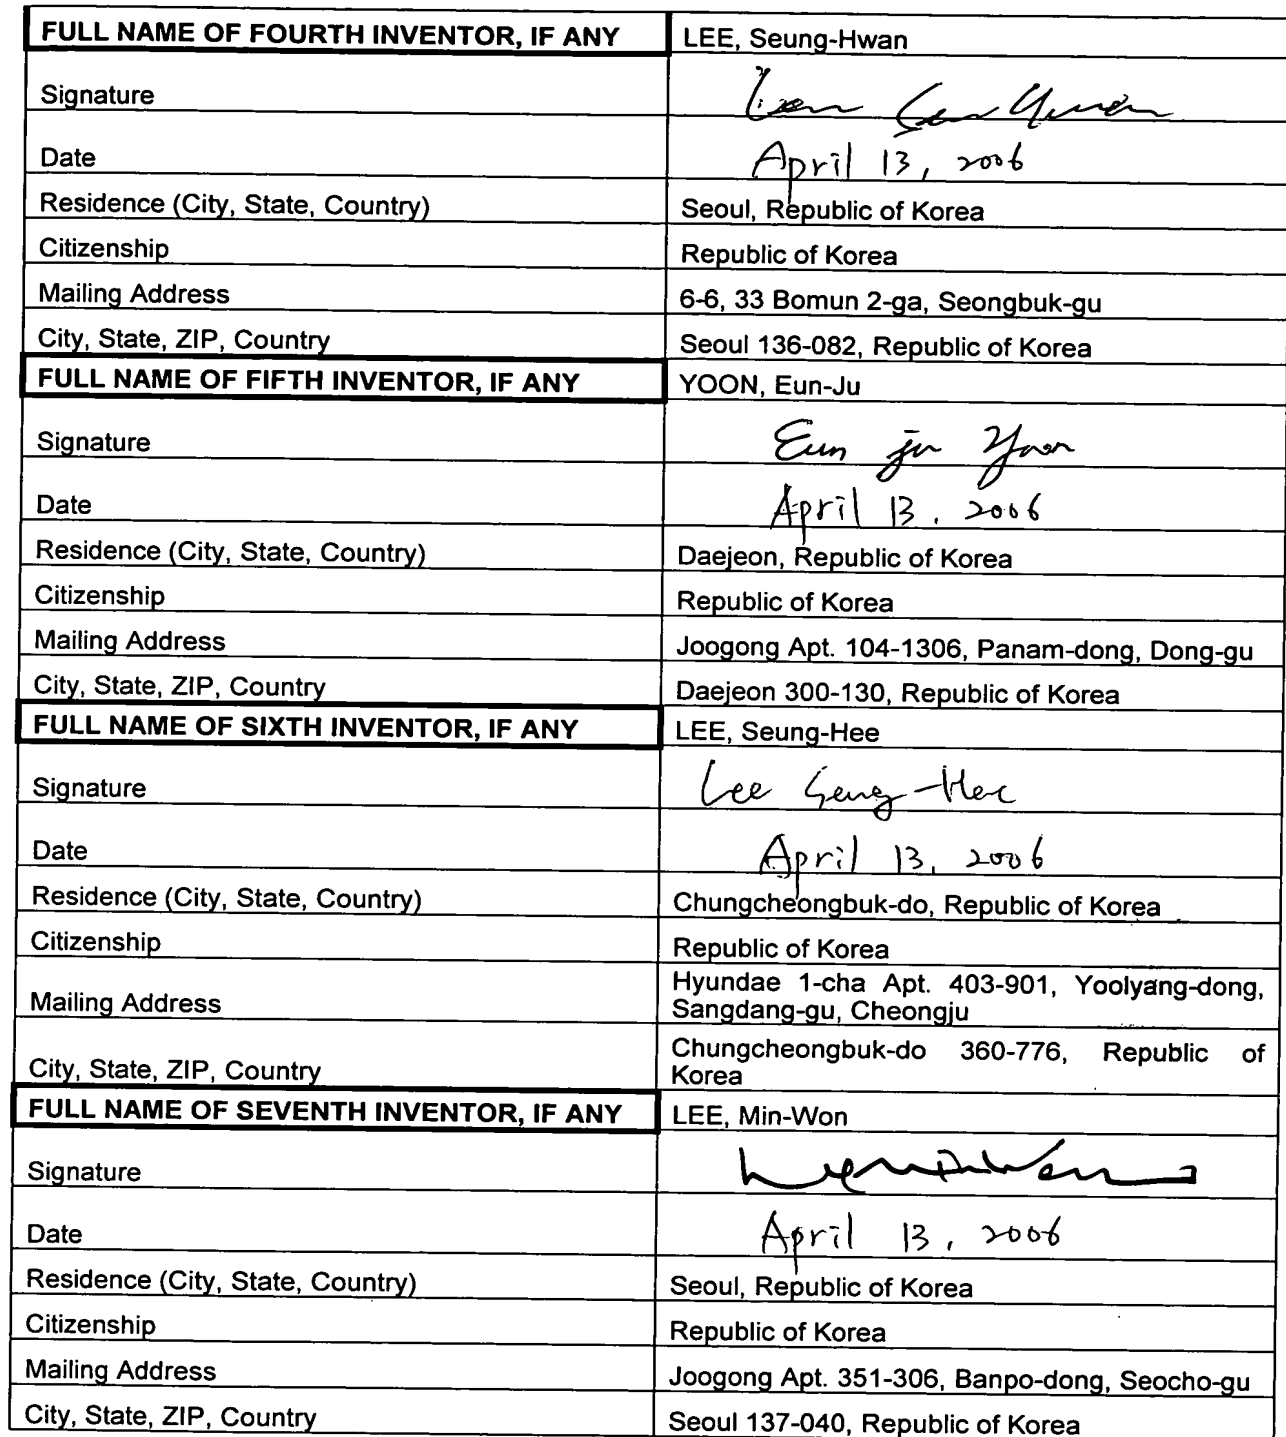 FULL NAME OF FOURTH INVENTOR, IF ANY LEE, Seung-Hwan
Signature
Date April 13, 2006
Residence (City, State, Country) Seoul, Republic of Korea
Citizenship Republic of Korea
Mailing Address 6-6, 33 Bomun 2-ga, Seongbuk-gu
City, State, ZIP, Country Seoul 136-082, Republic of Korea
FULL NAME OF FIFTH INVENTOR, IF ANY YOON, Eun-Ju
Signature Eun ju Yoon
Date April 13, 2006
Residence (City, State, Country) Daejeon, Republic of Korea
Citizenship Republic of Korea
Mailing Address Joogong Apt. 104-1306, Panam-dong, Dong-gu
City, State, ZIP, Country Daejeon 300-130, Republic of Korea
FULL NAME OF SIXTH INVENTOR, IF ANY LEE, Seung-Hee
Signature Lee Seung-Hee
Date April 13, 2006
Residence (City, State, Country) Chungcheongbuk-do, Republic of Korea
Citizenship Republic of Korea
Mailing Address Hyundae 1-cha Apt. 403-901, Yoolyang-dong,
Sangdang-gu, Cheongju
City, State, ZIP, Country Chungcheongbuk-do 360-776, Republic of
Korea
FULL NAME OF SEVENTH INVENTOR, IF ANY LEE, Min-Won
Signature
Date April 13, 2006
Residence (City, State, Country) Seoul, Republic of Korea
Citizenship Republic of Korea
Mailing Address Joogong Apt. 351-306, Banpo-dong, Seocho-gu
City, State, ZIP, Country Seoul 137-040, Republic of Korea